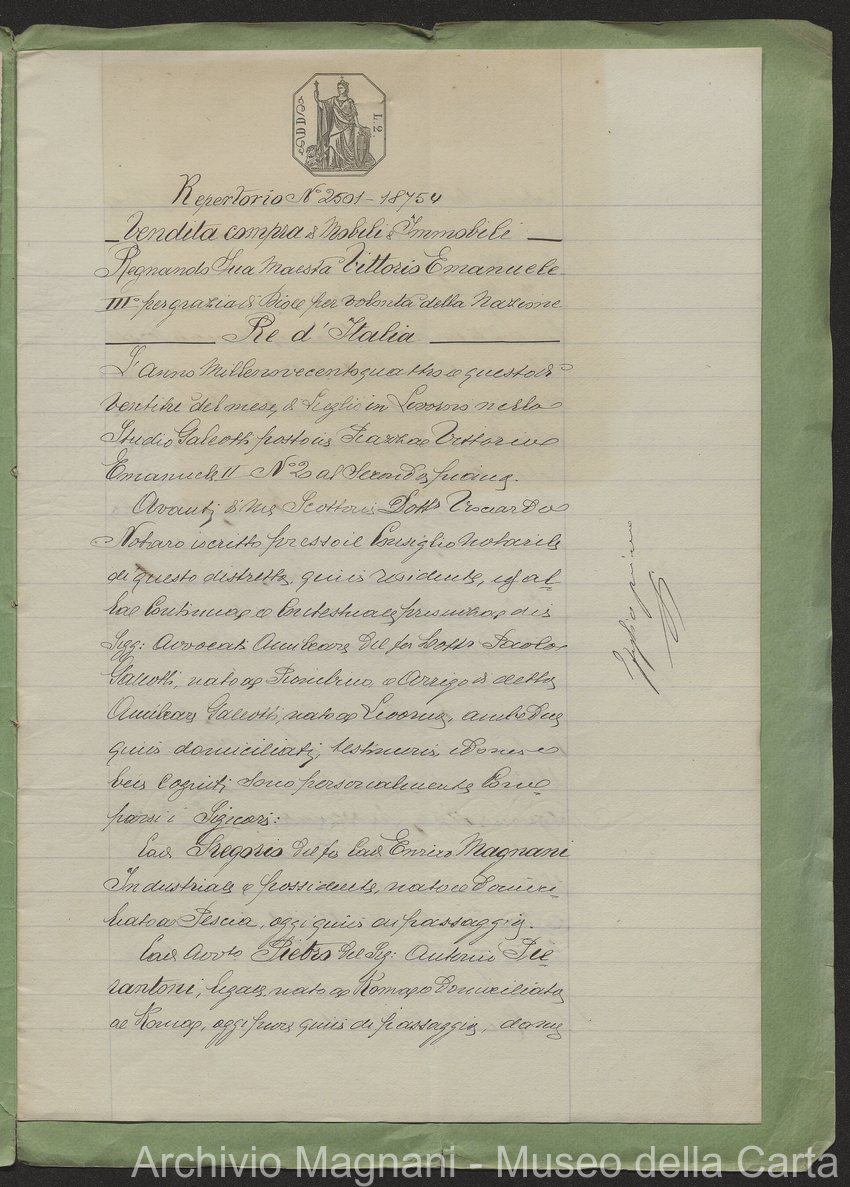 L. 2.
Repertorio N° 2501 - 18754
Vendita compra di Mobili e Immobili
Regnando Sua Maestà Vittorio Emanuele
III° per grazia di Dio e per volontà della Nazione
Re d'Italia
L'Anno Millenovecentoquattro e questo dì
ventitre del mese di Luglio in Livorno nello
Studio Galeotti posto in Piazza Vittorio
Emanuele II N° 2 al Secondo piano.
Avanti di me Scotto Dott.
Notaro iscritto presso il Consiglio Notarile
di questo distretto, quivi residente, ed al-
la continua e contestuale presenza dei
Sigg: Avvocati Amilcare del fu Dott. Paolo
Galeotti, nato a Piombino, e Arrigo di detto
Amilcare Galeotti, nato a Livorno, ambedue
quivi domiciliati, testimoni idonei e
ben cogniti sono personalmente Com-
parsi i Signori:
Cav. Gregorio del fu Cav. Enrico Magnani
Industriale e possidente, nato e domici-
liato a Pescia, oggi quivi di passaggio.
Cav. Avvto Pietro del Sig: Antonio Pie-
rantoni, legale, nato a Roma e domiciliato
a Roma, oggi pure quivi di passaggio, da me
foglio primo
Archivio Magnani - Museo della Carta